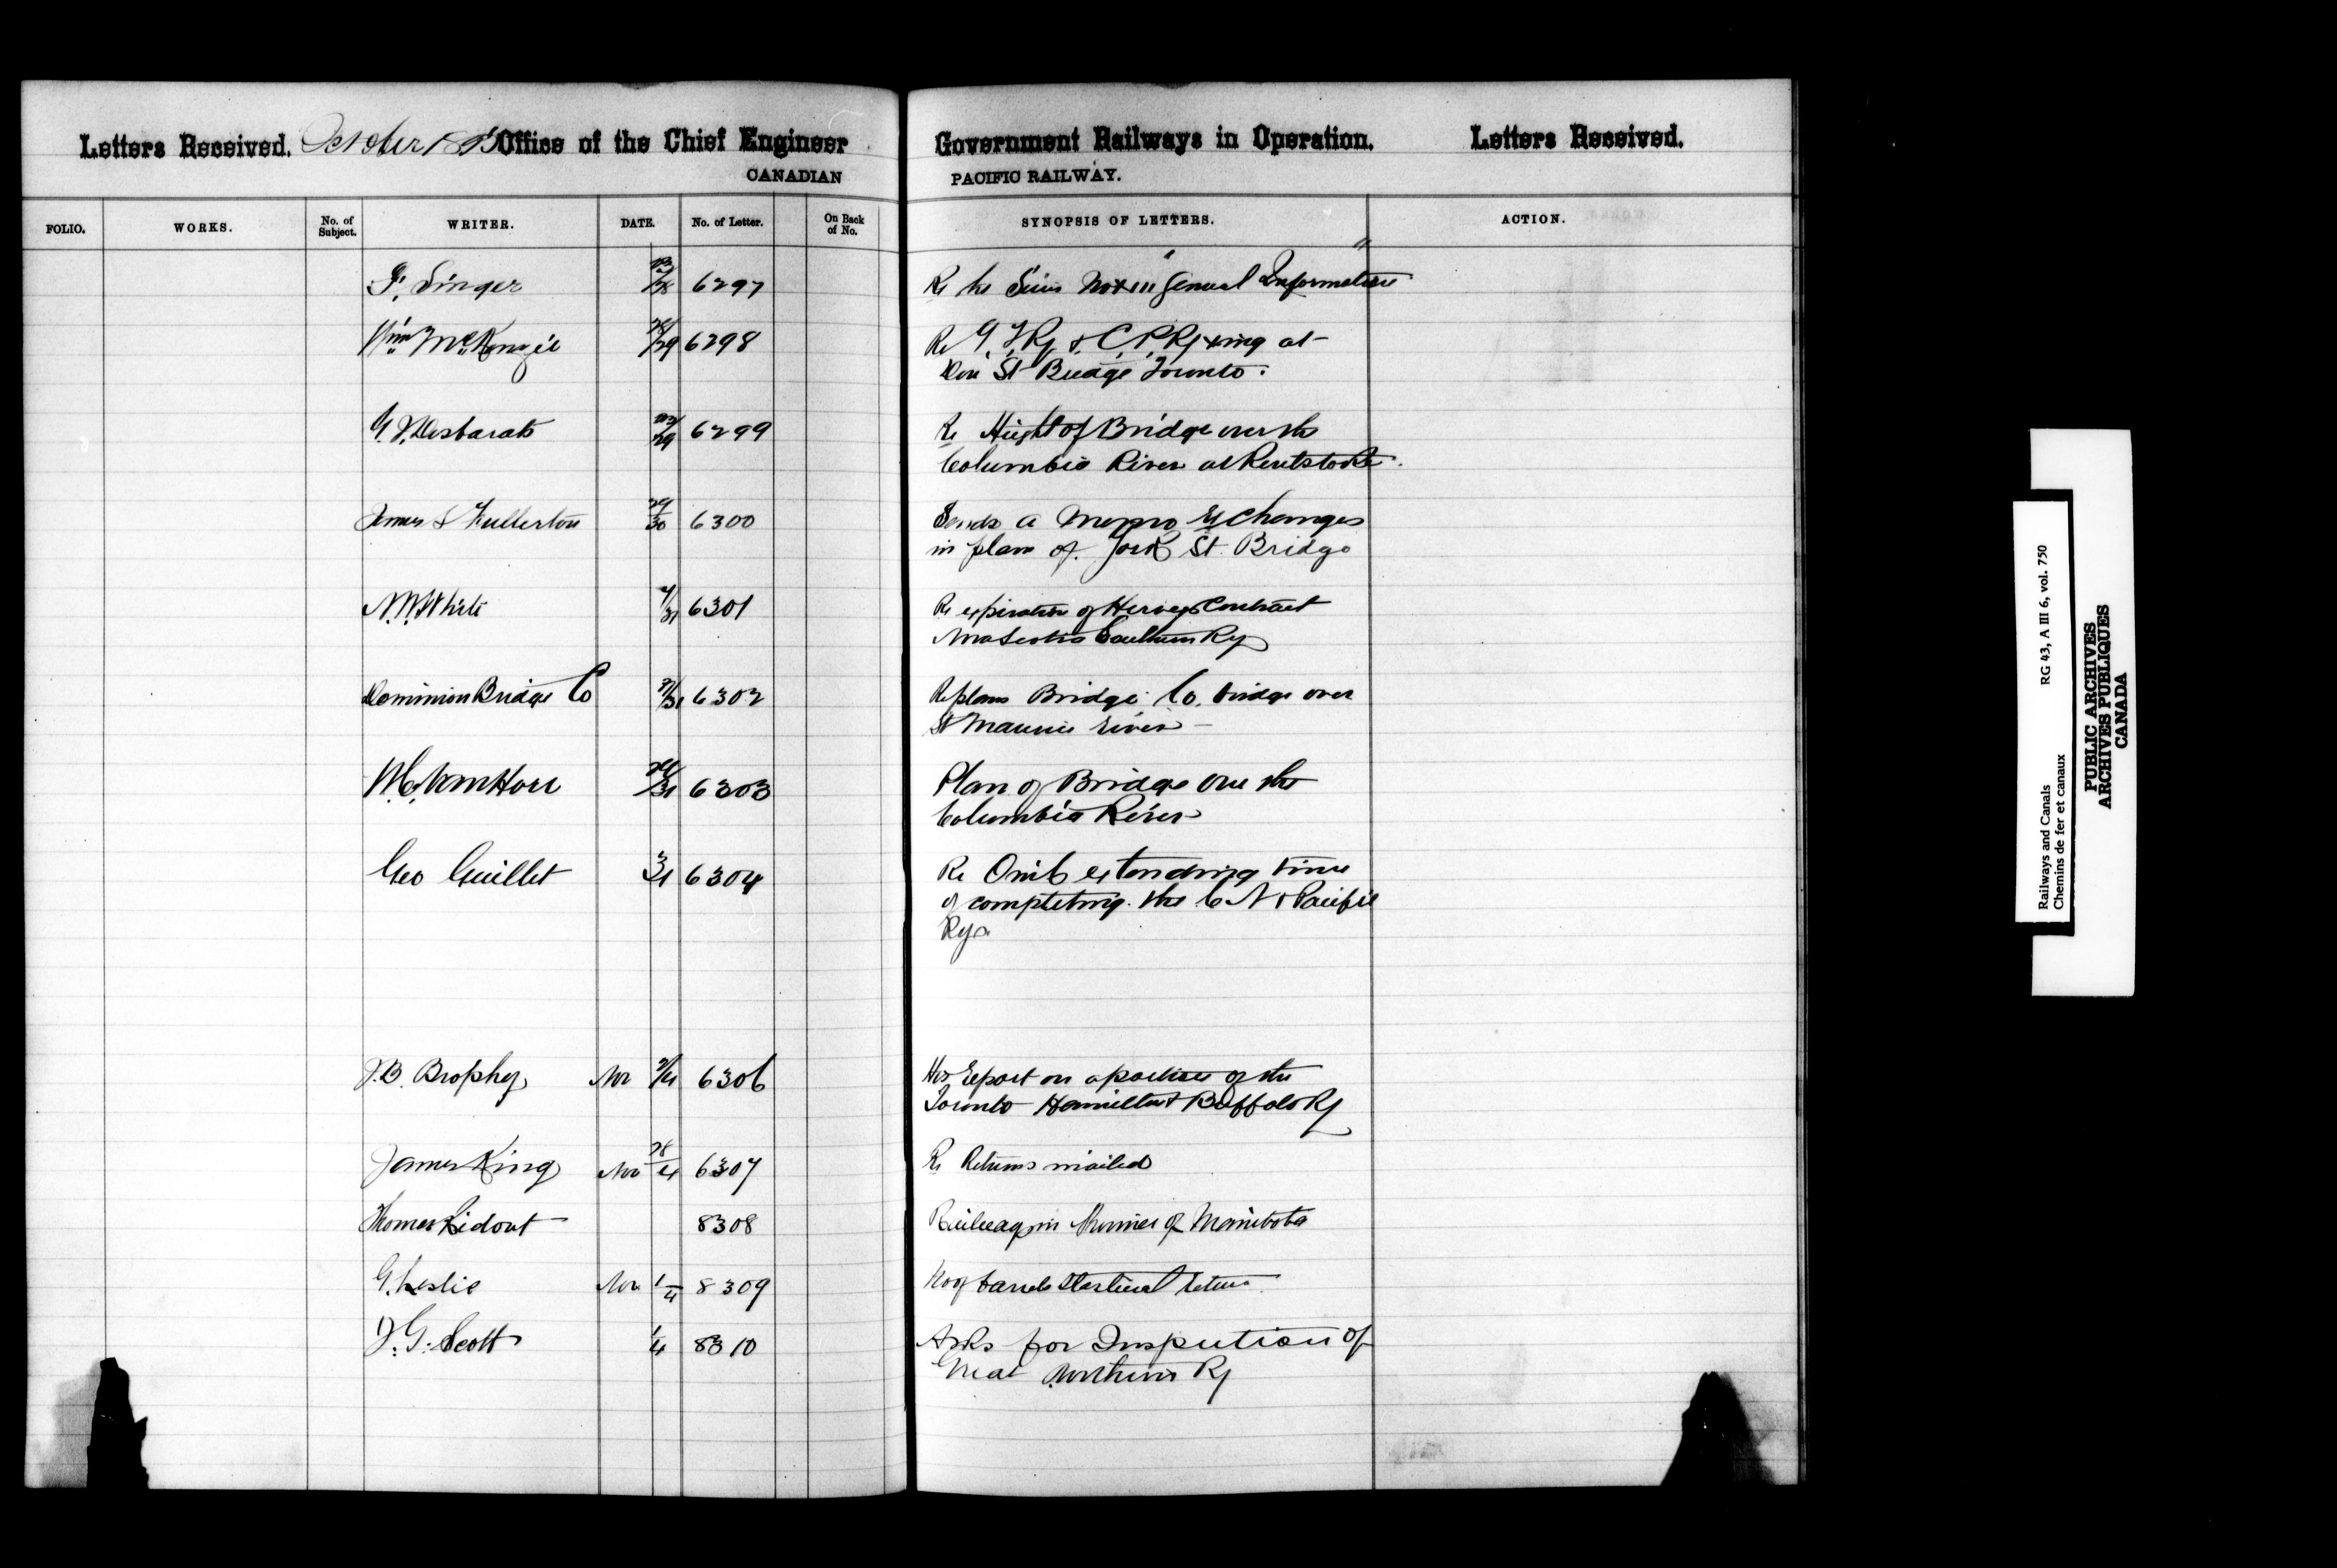 Letters Received. October 18 Office of the Chief Engineer
CANADIAN
FOLIO. WORKS. No. of Subject. WRITER. DATE. No. of Letter. On Back of No.
Singer 28 6297
Wm McKenzie 28/29 6298
G. J. Desbarats 29 6299
James S Fullerton 29/30 6300
N. W. White 31 6301
Dominion Bridge Co 31 6302
W. C. Van Horne 31 6303
Geo Guillet 31 6304
J. B. Brophy Nov 2/4 6306
James King Nov 28/4 6307
Thomas Ridout 8308
G. Leslie Nov 1/4 8309
J. G. Scott 1/4 8310
Government Railways in Operation. Letters Received.
PACIFIC RAILWAY.
SYNOPSIS OF LETTERS. ACTION.
Re his General Information
Re G. T. Ry & C. P. Ry xing at
Don St Bridge Toronto.
Re Height of Bridge over the
Columbia River at Revelstoke.
Sends a Memo re changes
in plan of York St. Bridge
Re expiration of Herveys Contract
Nova Scotia Southern Ry
Re plans Bridge Co. bridge over
St Maurice River
Plan of Bridge over the
Columbia River
Re O in C extending time
of completing the C N & Pacific
Rys
His report on a portion of the
Toronto Hamilton & Buffalo Ry
Re Returns mailed
Railways in Province of Manitoba
No of barrels return
Asks for Inspection of
Great Northern Ry
Railways and Canals RG 43, A III 6, vol. 750
Chemins de fer et canaux
PUBLIC ARCHIVES
ARCHIVES PUBLIQUES
CANADA